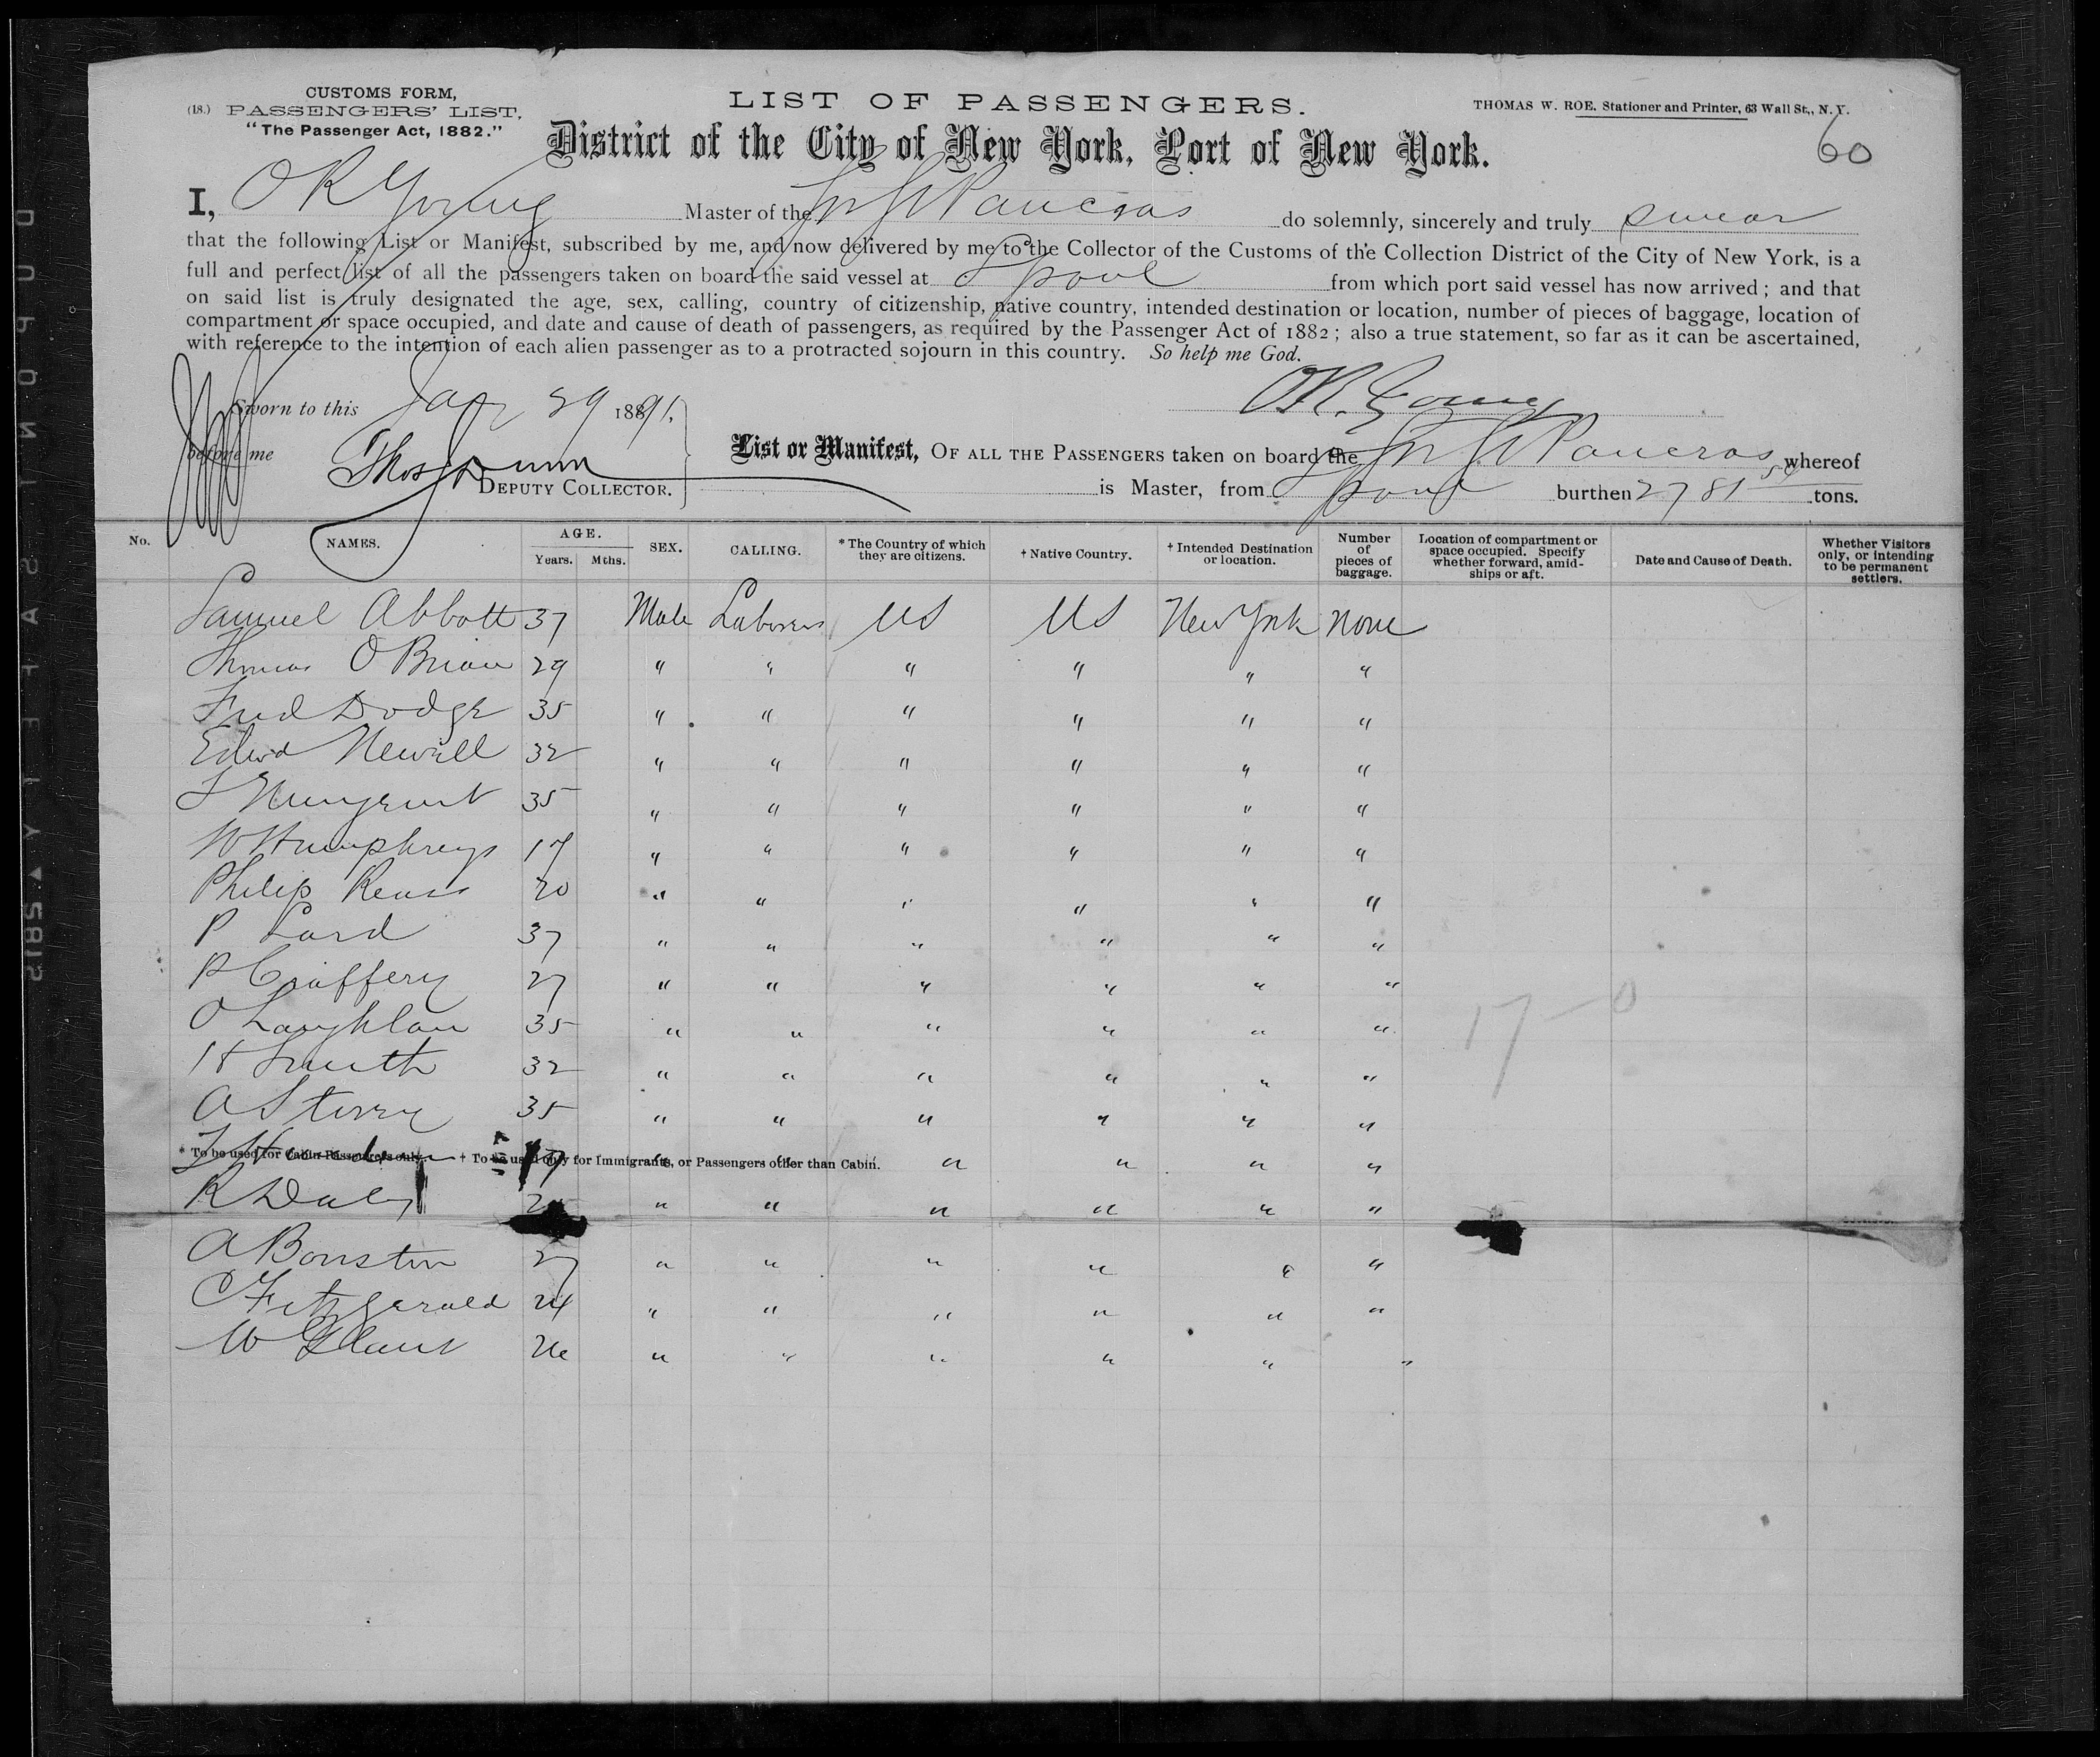 CUSTOMS FORM,
(18.) PASSENGERS' LIST,
"The Passenger Act, 1882."
LIST OF PASSENGERS.
THOMAS W. ROE. Stationer and Printer, 63 Wall St., N.Y.
District of the City of New York, Port of New York.
60
I, O R Young Master of the Str St Pancras do solemnly, sincerely and truly swear
that the following List or Manifest, subscribed by me, and now delivered by me to the Collector of the Customs of the Collection District of the City of New York, is a
full and perfect list of all the passengers taken on board the said vessel at L'pool from which port said vessel has now arrived; and that
on said list is truly designated the age, sex, calling, country of citizenship, native country, intended destination or location, number of pieces of baggage, location of
compartment or space occupied, and date and cause of death of passengers, as required by the Passenger Act of 1882; also a true statement, so far as it can be ascertained,
with reference to the intention of each alien passenger as to a protracted sojourn in this country. So help me God.
O.R. Young
Sworn to this Jan 29 1891.
before me Thos Dunn
DEPUTY COLLECTOR.
List or Manifest, OF ALL THE PASSENGERS taken on board the Str St Pancras whereof
is Master, from L'pool burthen 2781 54 tons.
No. NAMES. AGE. Years. Mths. SEX. CALLING. * The Country of which they are citizens. † Native Country. † Intended Destination or location. Number of pieces of baggage. Location of compartment or space occupied. Specify whether forward, amid-ships or aft. Date and Cause of Death. Whether Visitors only, or intending to be permanent settlers.
Samuel Abbott 37 Male Laborer US US New York None
Thomas O Brian 29 " " " " " "
Fred Dodge 35 " " " " " "
Edwd Newell 32 " " " " " "
35 " " " " " "
W Humphreys 17 " " " " " "
Philip 20 " " " " " "
P Lord 37 " " " " " "
P Craffery 27 " " " " " "
O Laughlan 35 " " " " " "
H Smith 32 " " " " " "
A Storry 35 " " " " " "
19 " " " " " "
* To be used for Cabin Passengers only. † To be used only for Immigrants, or Passengers other than Cabin.
R Daly " " " " " "
A Bonston 27 " " " " " "
C Fitzgerald 24 " " " " " "
W Glant 26 " " " " " "
17 – 0